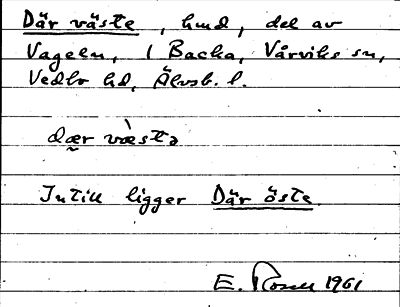 Där väste, hmd, del av
Vageln, 1 Backa, Vårviks sn,
Vedbo hd, Älvsb. l.
dær vàstə
Intill ligger Där öste.
E. Rosell 1961